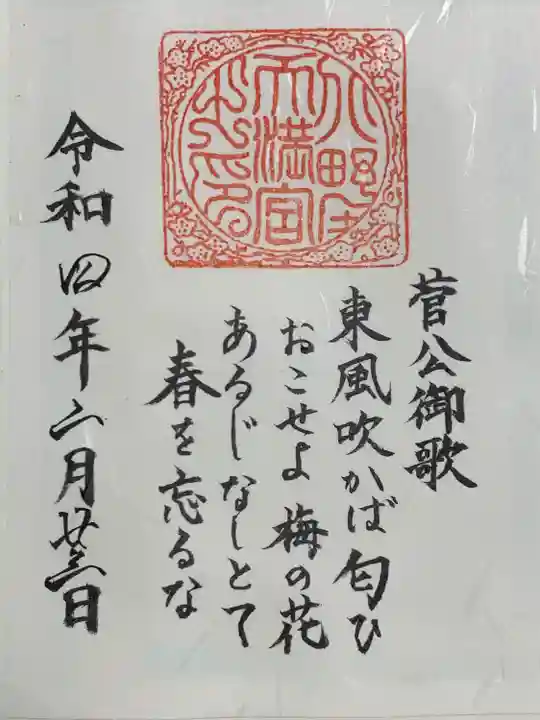 菅公御歌
東風吹かば匂ひ
おこせよ梅の花
あるじなしとて
春を忘るな
令和四年二月廿三日
天満宮